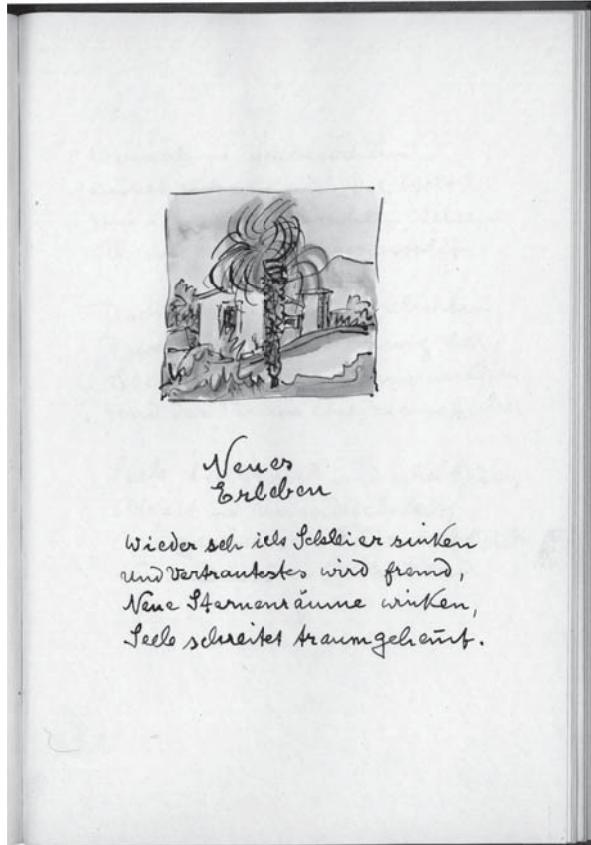 Neues
Erleben
Wieder seh ich Schleier sinken
und Vertrautestes wird fremd,
Neue Sternenräume winken,
Seele schreitet traumgehemt.